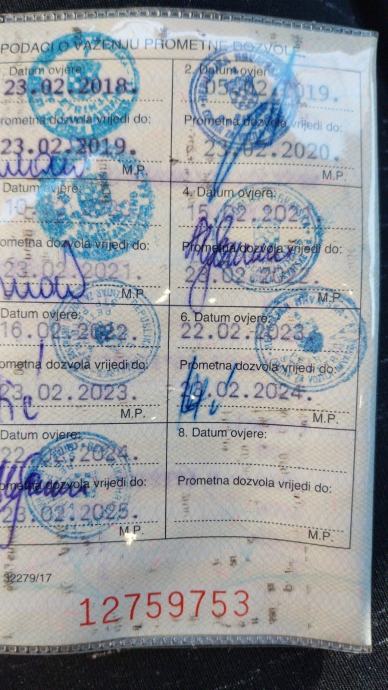 PODACI O VAŽENJU PROMETNE DOZVOLE
. Datum ovjere:
23.02.2018.
rometna dozvola vrijedi do:
23.02.2019.
M.P.
2. Datum ovjere:
05.02.2019.
Prometna dozvola vrijedi do:
23.02.2020.
M.P.
Datum ovjere:
10
ometna dozvola vrijedi do:
23.02.2021.
M.P.
4. Datum ovjere:
15.02.202
Prometna dozvola vrijedi do:
M.P.
Datum ovjere:
16.02.2022.
ometna dozvola vrijedi do:
23.02.2023
M.P.
6. Datum ovjere:
22.02.2023.
Prometna dozvola vrijedi do:
.02.2024.
M.P.
Datum ovjere:
22.02.2024.
ometna dozvola vrijedi do:
23.02.2025.
M.P.
8. Datum ovjere:
Prometna dozvola vrijedi do:
M.P.
32279/17
12759753